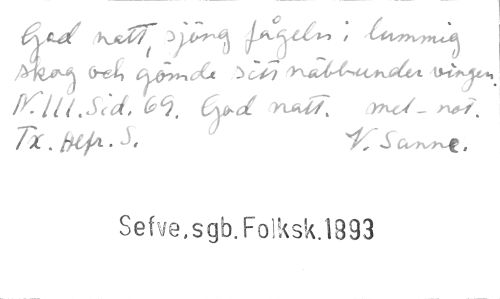 God natt, sjöng fågeln i lummig
skog och gömde sitt näbb under vingen.
N. III. Sid. 69. God natt. mel-not.
Tx. Alfr. S. V. Sanne.
Sefve, sgb. Folksk. 1893